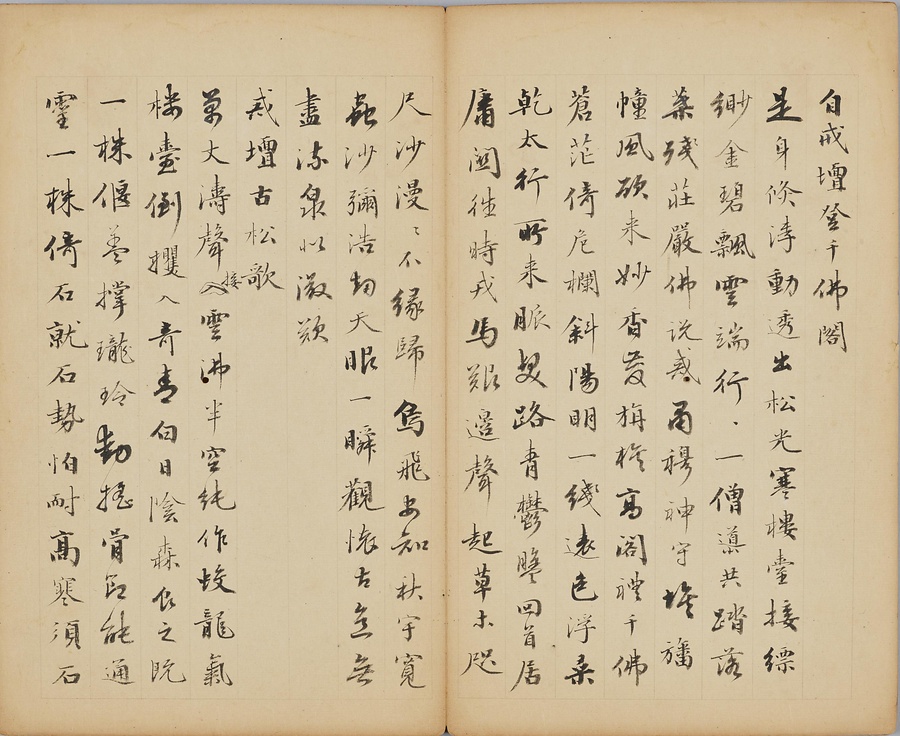 自戒壇登千佛閣
是身倏浮動透出松光寒樓臺接縹
緲金碧飄雲端行〻一僧導共踏落
葉殘莊嚴佛説戒肅穆神守壇旛
幢風欲来妙香發旃檀高閣禮千佛
蒼茫倚危欄斜陽明一綫遠色浮桑
乾太行所来脈路青鬱盤回首居
庸關往時戎馬艱邊聲起草木咫
尺沙漫〻不緣歸鳥飛安知秋宇寬
蟲沙彌浩劫天眼一瞬觀懷古意無
盡流泉似激歎
戒壇古松歌
萬丈濤聲接雲沸半空純作蛟龍氣
樓臺倒攫入奇青白日陰森食之既
一株偃蓋撐瓏玲動摇骨節能通
靈一株倚石就石勢怕耐高寒須石